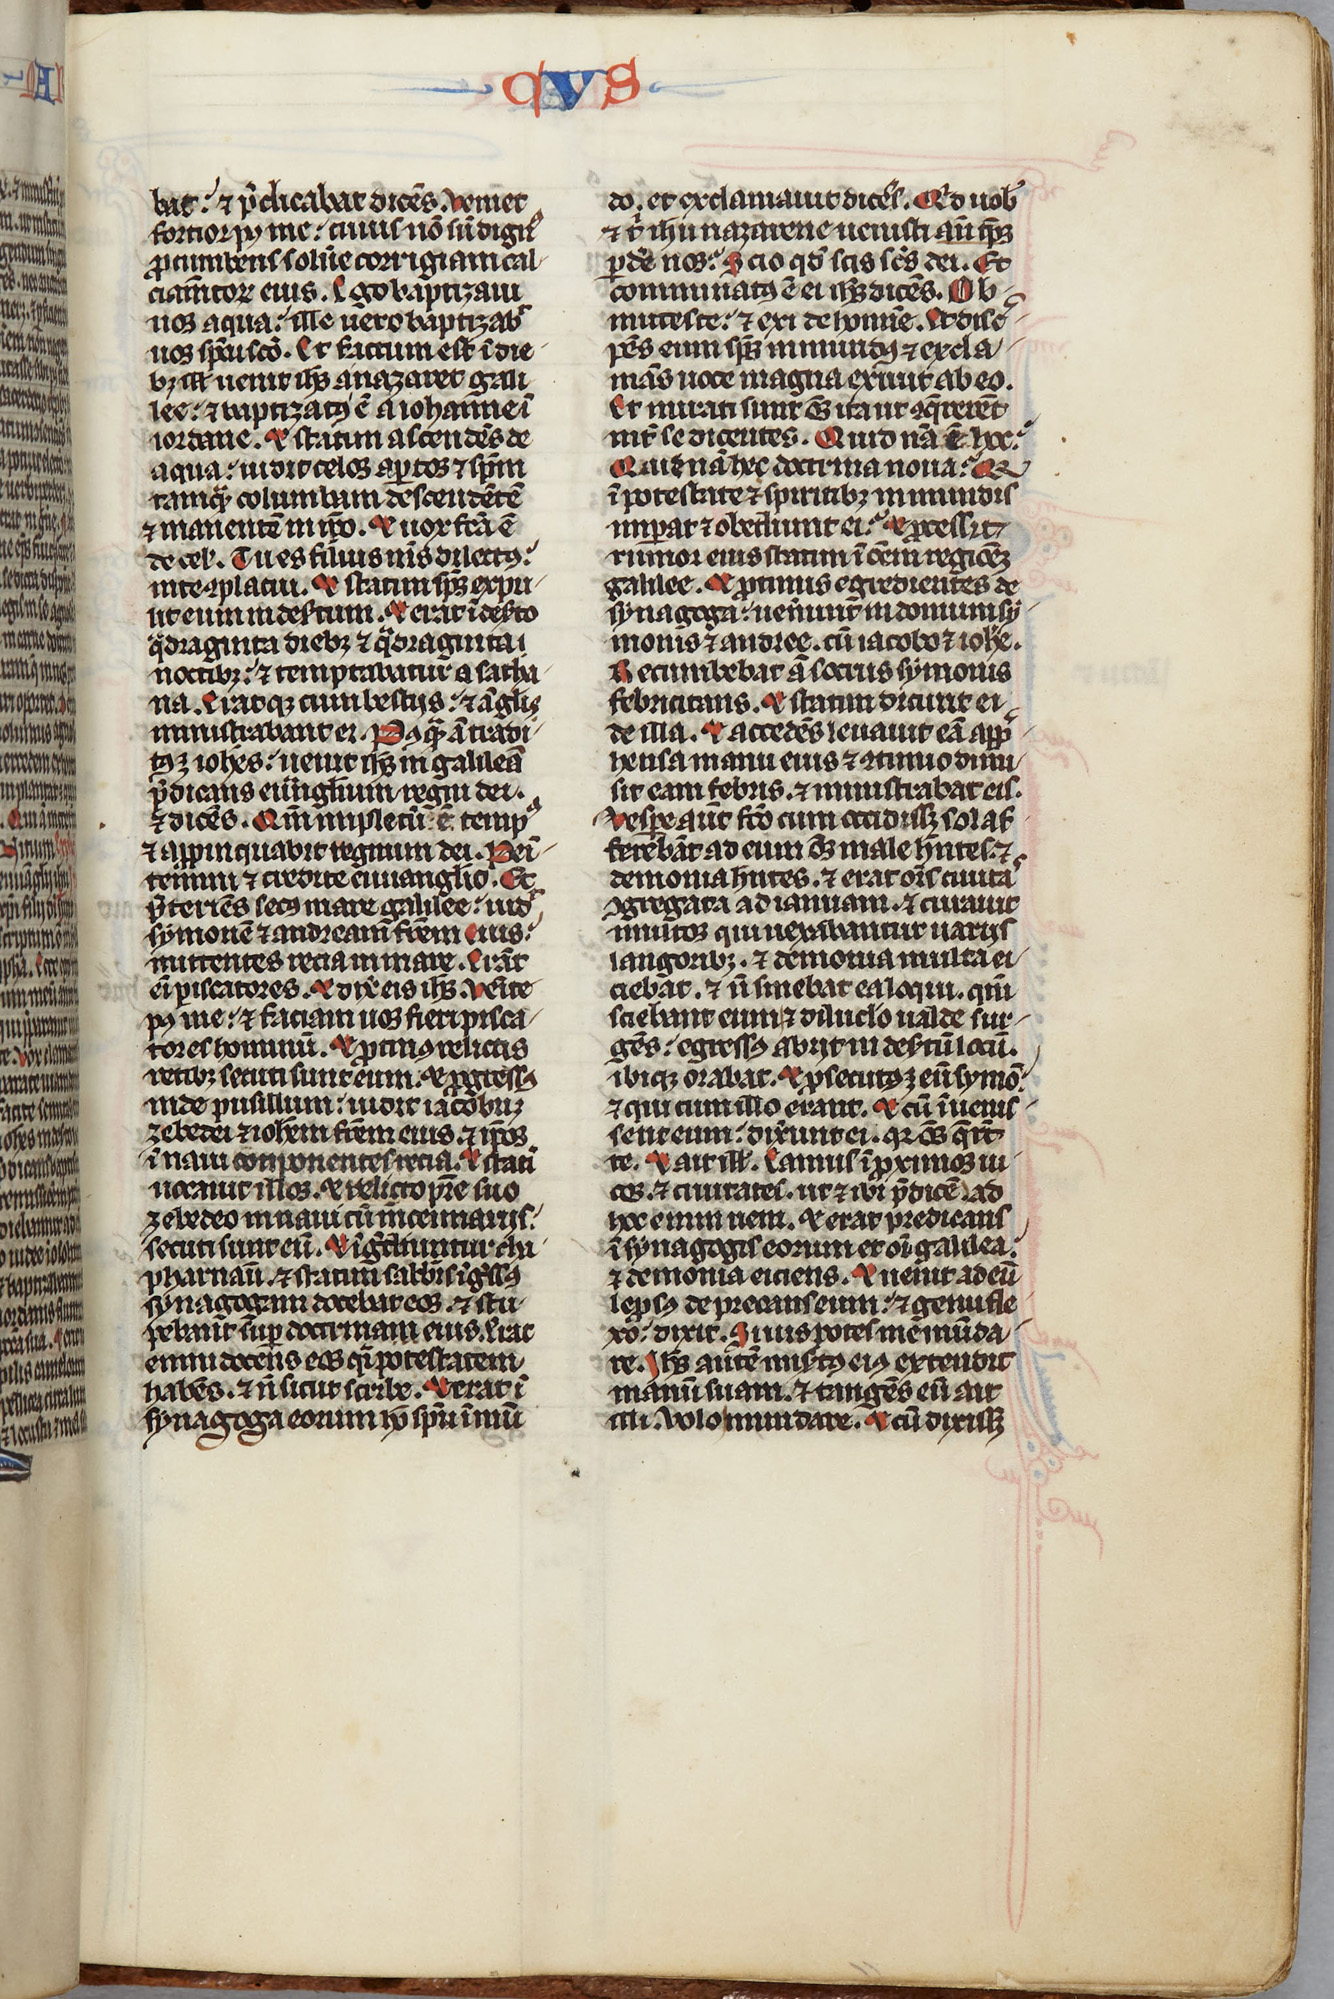 QVS
bat: ⁊ p̃dicabat dicẽs. Veniet
fortior pꝰ me: cuius nõ sũ dignꝰ
ꝓcumbens soluͤe corrigiam cal-
ciam̃toꝝ eius. Ego baptizaui
uos aqua: ille uero baptizabͭ
uos sp̃u sc̃o. Et factum est ĩ die-
bꝫ ill̃ uenit ih̃s a nazaret gali
lee: ⁊ baptizatꝰ ẽ a iohanne ĩ
iordane. Et statim ascendẽs de
aqua: uidit celos apertos ⁊ sp̃m
tamqͣ columbam descendẽtẽ
⁊ manentẽ in ip̃o. Et uox fc̃a ẽ
de cel̃. Tu es filius mẽs dilectꝰ:
in te ꝯplacui. Et statim sp̃s expu-
lit eum in desertum. Et erat ĩ deserto
qͣdraginta diebꝫ ⁊ qͣdraginta
noctibꝫ: ⁊ temptabatur a satha-
na. Eratqꝫ cum bestiis: ⁊ ãgli
ministrabant ei. Pꝰqͣ ã tradi-
tꝰ ꝫ ioh̃es: uenit ih̃s in galileã
p̃dicans euãgl̃ium regni dei.
⁊ dicẽs. Qm̃ impletũ ẽ tempꝰ
⁊ appinquabit regnum dei. Peni-
temini ⁊ credite euuanglio. Et
p̃teriẽs secꝰ mare galilee: uidͭ
symonẽ ⁊ andream fr̃em eius:
mittentes retia in mare. Erãt
ẽi piscatores. Et dix̃ eis ih̃s. Venite
pꝰ me: ⁊ faciam uos fieri pisca-
tores hominũ. Et ꝓtinꝰ relictis
retibꝫ secuti sunt eum. Et ꝓgressꝰ
inde pusillum: uidit iacobuꝫ
zebedei ⁊ ioh̃em fr̃em eius. ⁊ ip̃os
ĩ naui componentes retia. Et statĩ
uocauit illos. Et relicto pr̃e suo
zebedeo in naui cũ m̃cennariis:
secuti sunt eũ. Et ĩgrediuntur cha-
pharnaũ. ⁊ statim sabb̃is ĩgͥssꝰ
synagogam docebat eos. ⁊ stu-
pebant sup̃ doctrinam eius. Erat
enim docens eos qͣi potestatem
habẽs. ⁊ ñ sicut scribe. Et erat ĩ
synagoga eorum hõ sp̃u ĩmũ
do. et exclamauit dicẽs. Qͥd nobͥ
⁊ tͥ ih̃u nazarene uenisti añ tp̃s
ꝑdẽ nos: Scio qͥd scis sc̃s dei. Et
comminatꝰ ẽ ei ih̃s dicẽs. Ob-
mutesce: ⁊ exi de homine. Et discͬ-
pẽs eum sp̃s immundꝰ ⁊ excla-
mãs uoce magna exiuit ab eo.
Et mirati sunt om̃s ita ut ꝯqͥrerẽt
int̃ se dicentes. Quid nã ẽ hoc:
Quenã hec doctrina noua: Qͥ
ĩ potestate ⁊ spiritibꝫ immundis
imperat ⁊ obediunt ei: Et ꝓcessit
rumor eius statim ĩ om̃em regioẽꝫ
galilee. Et ꝓtinus egredientes de
synagoga: uenerunt in domum sy-
monis ⁊ andree. cũ iacobo ⁊ ioh̃e.
Recumbebat ã socrus symonis
febricitans. Et statim dicunt ei
de illa. Et accedẽs leuauit eã app̃-
hensa manu eius ⁊ ꝯtinuo dimi-
sit eam febris. ⁊ ministrabat eis.
Vespe aut̃ fc̃o cum occidiss̃ sol af-
ferebãt ad eum om̃s male hñtes. ⁊
demonia hñtes. ⁊ erat om̃is ciuitaͣ
ꝯgregata ad ianuam. ⁊ curauit
multos qui uexabantur uariis
langoribꝫ. ⁊ demonia multa ei-
ciebat. ⁊ ñ sinebat ea loqui. qm̃
sciebant eum ⁊ diluclo ualde sur-
gẽs: egressꝰ abiit in desertũ locũ.
ibiqꝫ orabat. Et ꝓsecutꝰ ꝫ eũ symõ:
⁊ qui cum illo erant. Et cũ ĩuenis-
sent eum: dixẽrunt ei. qꝛ om̃s qͥrũt
te. Et ait ill̃. Eamus ĩ ꝓximos ui-
cos. ⁊ ciuitates. ut ⁊ ibi p̃dicẽ ad
hoc enim ueni. Et erat predicans
ĩ synagogis eorum et oĩ galilea:
⁊ demonia eiciens. Et uenit ad eũ
leprsꝰ deprecans eum: ⁊ genu fle-
xo: dixit. Si uis potes me mũda-
re. Ih̃s autẽ misertꝰ eiꝰ extendit
manũ suam. ⁊ tangẽs eũ ait
illi. Volo mundare. Et cũ dixiss̃